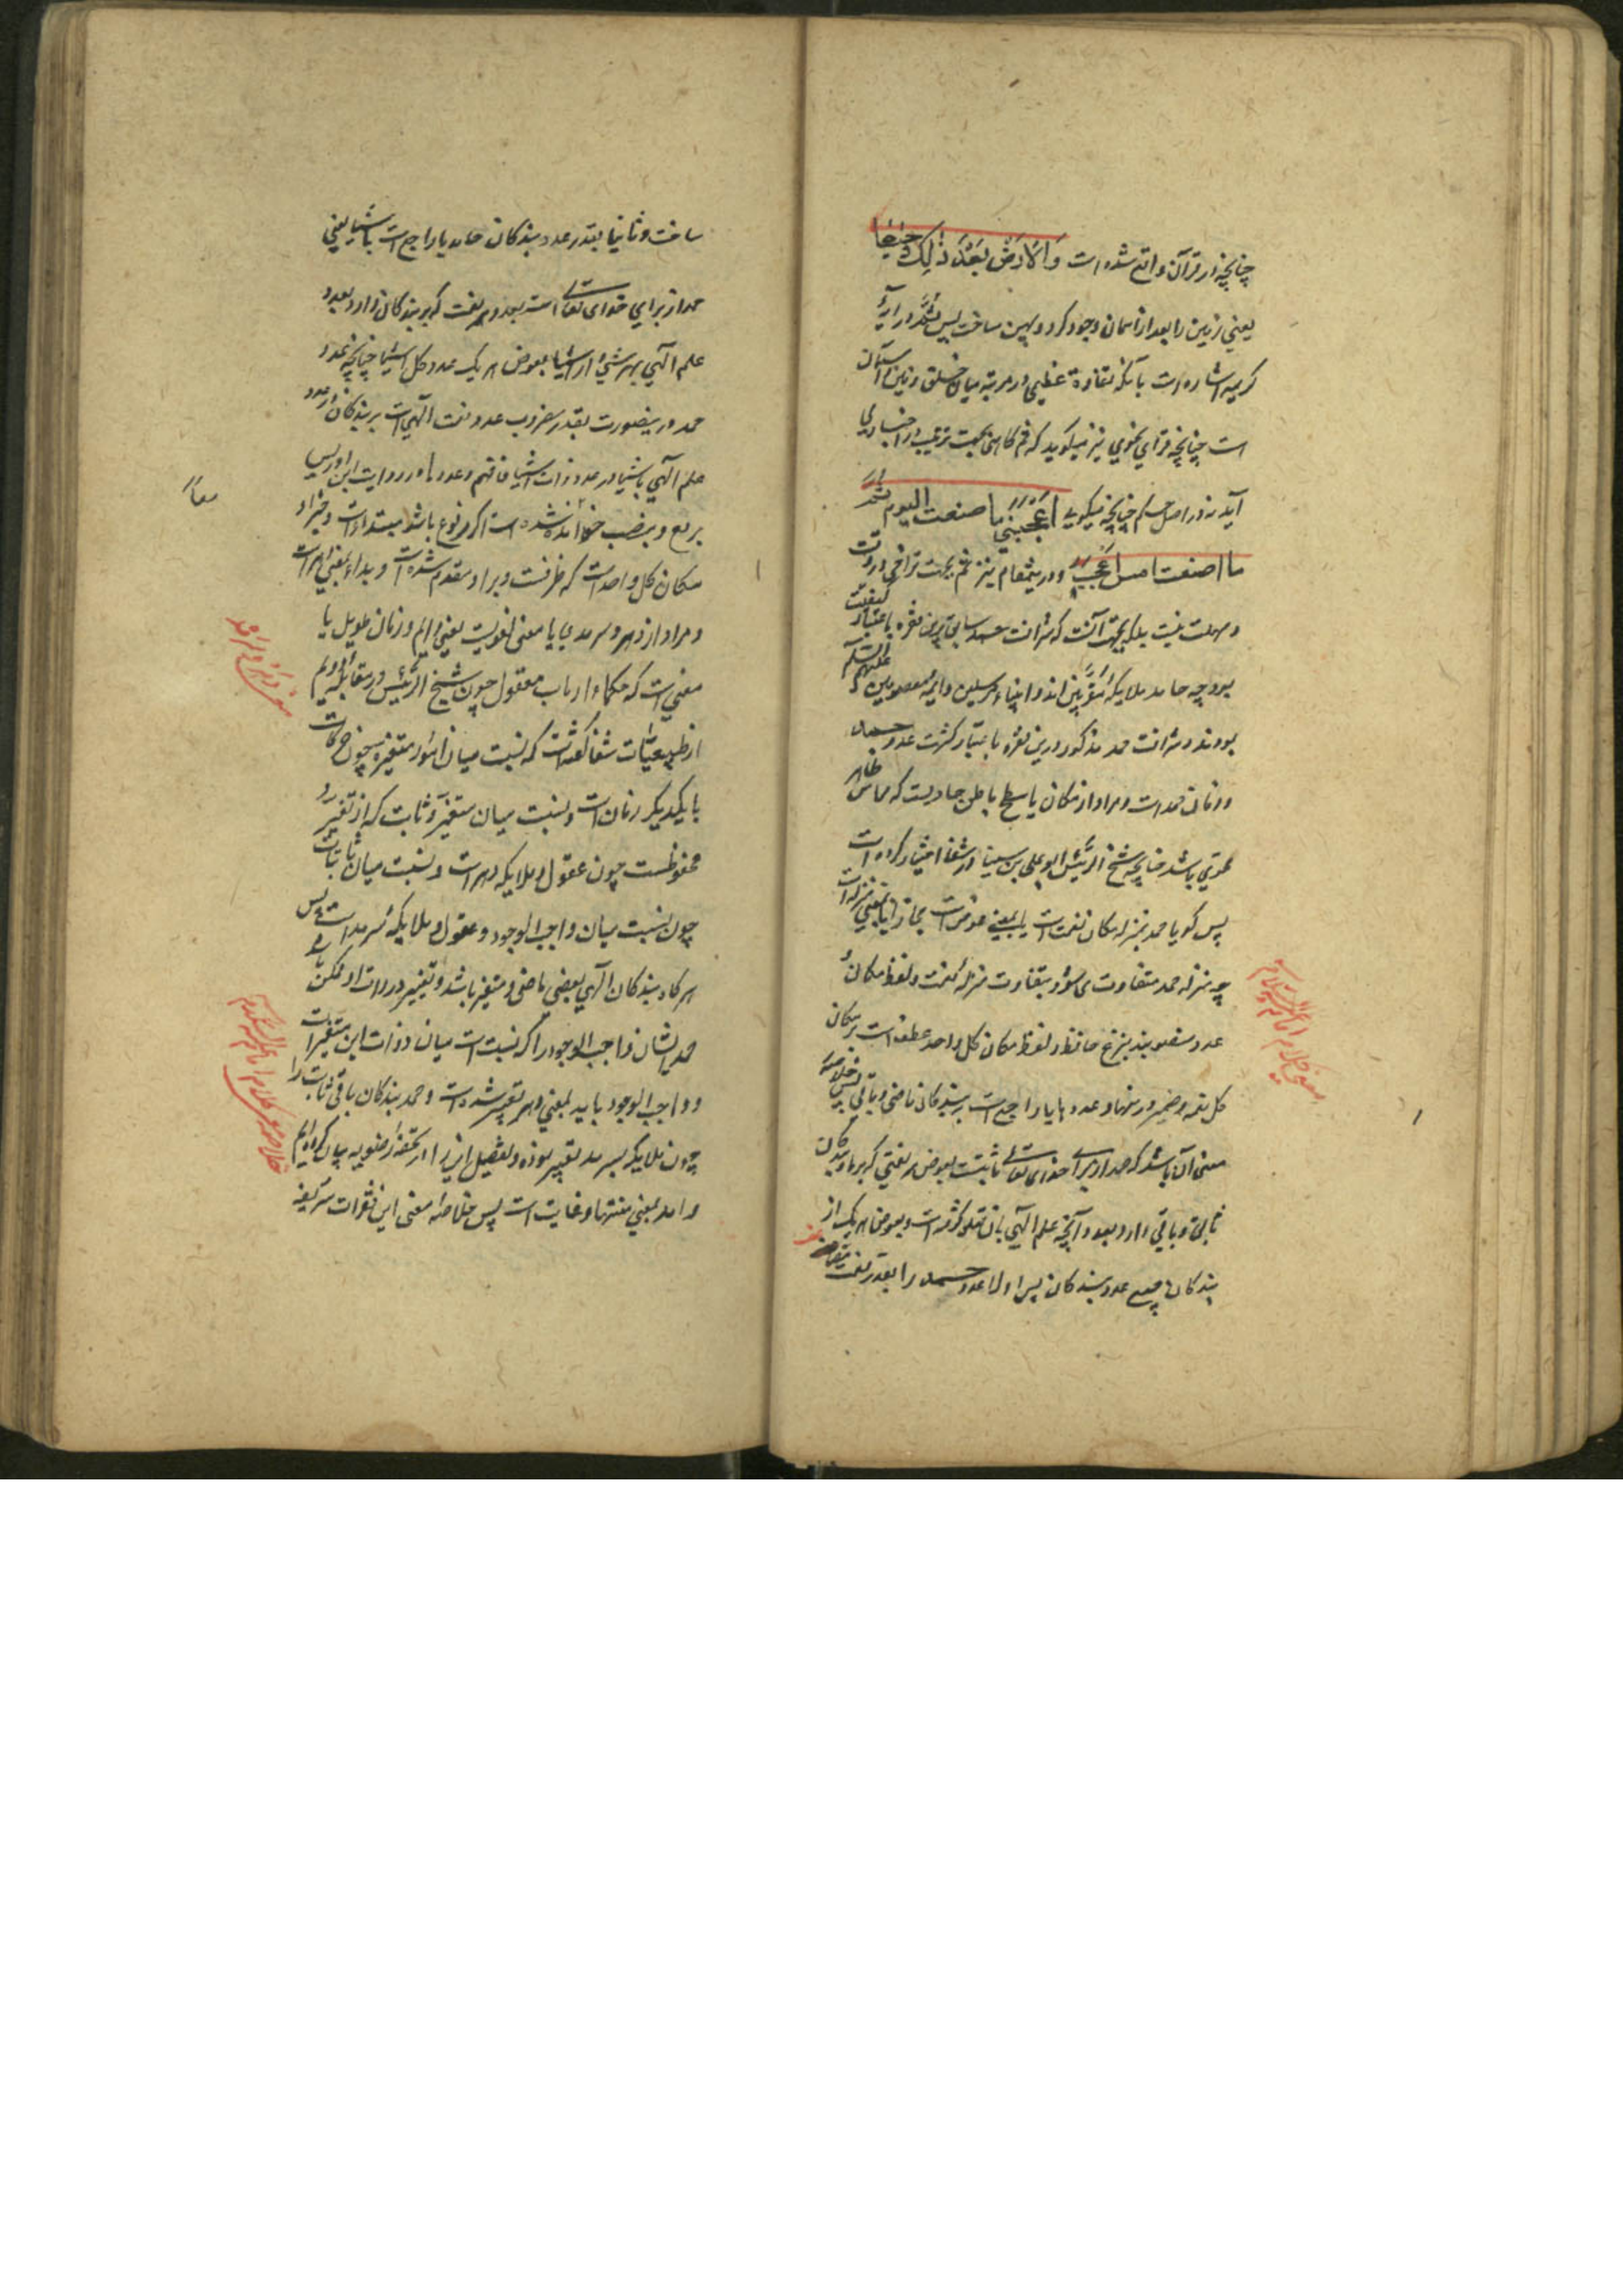 چنانچه در قرآن واقع شده است وَالْاَرْضَ بَعْدَ ذٰلِكَ دَحٰيهٰا
یعنی زمین را بعد از آسمان وجود کرد و پهن ساخت پس ثُمَّ در آیهٔ
کریمه اشاره است بآنکه تفاوة عظیمی در مرتبه میان خلق زمین و آسمان
است چنانچه فرّای نحوی نیز میگوید که ثم گاهی بجهت ترتیب در اخبار می
آید نه در اصل حکم چنانچه میکویی اَعْجَبَنِي ما صنعت اليوم ثمّ
ما صنعت امس اَعْجَب و درینمقام نیز ثم بجهت تراخی در وقت
و مهلت نیست بلکه بجهت آنست که شرافت حمد سابق برین فقره باعتبار کیفیّت
بود چه حامد ملایکهٔ مقرّبین اند و انبیاء مرسلین و ایمه معصومین علیهم السّلام
بودند و شرافت حمد مذکور درین فقره باعتبار کثرت عدد حمد
و زمان حمد است و مراد از مکان یا سطح باطن حاویست که مماس ظاهر
محوی باشد چنانچه شیخ الرّئیس ابو علی بن سینا در شفا اختیار کرده است
پس گویا حمد بمنزله مکان نعمت است یا بمعنی عوض است مجازا یا بمعنی منزلة است
چه منزله حمد متفاوت می شود بتفاوت منزلهٔ نعمت و لفظ مکانُ
عدد منصوبند بنزع خافض و لفظ مکان کل واحد عطف است بر مکان
کل نعمه و ضمیر در منها و عدد ها یا راجع است بر بندکان ماضی و باقی پس خلاصهٔ
معنی آن باشد که حمد از برای خدای تعالی ثابتست بعوض هر نعمتی که بر ما و بندکان
سابق و باقی دارد و بعدد آنچه علم الهی بآن تعلق گرفته است و بعوض هر یک از
بندکان جمیع عدد بندکان پس اولا عدد حمد را بقدر نعمت
معنی کلام امام علیه السّلام
ساخت و ثانیا بقدر عدد بندکان حامد یا راجع است باشیا یعنی
حمد از برای خدای تعالی است بعدد هر نعمت که بر بندکان دارد و بعدد
علم الهی بهر شیئ از اشیا بعوض هر یک عدد کل اشیا چنانچه عدد
حمد درینصورت بقدر مضروب عدد نعمت الهی است بر بندکان در عدد
علم الهی باشیا در عدد ذات اشیا فافهم و عددها در روایت ابن ادریس
برفع و بنصب خوانده شده است اگر مرفوع باشد مبتداست و خبر او
مکان کل واحد است که ظرفست و بر او مقدم شده است و بداء بمعنی امرات
و مراد از دهر و سرمد یا معنی لغویست یعنی دایم و زمان طویل یا
معنی است که حکما و ارباب معقول چون شیخ الرّئیس در مقالهٔ دویم
از طبیعیّات شفا گفته است که نسبت میان امور متغیّره چون حرکات
بایکدیکر زمان است و نسبت میان متغیّر و ثابت که از تغیّر
محفوظست چون عقول و ملایکه دهر است و نسبت میان ثابتات
چون نسبت میان واجب الوجود و عقول و ملایکه سرمد است پس
هر کاه بندکان الهی بعضی ماضی و متغیر باشد و تغییر در ذات او ممکن
حمد ایشان واجب الوجود را که نسبت است میان ذوات این متغیّرات
و واجب الوجود باید بمعنی دهر تعبیر شده است و حمد بندکان باقی ثابت را
چون ملایکه بسرمد تعبیر نموده و تفصیل این را در تحفهٔ رضویه بیان کرده ایم
و امد بمعنی منتها و غایت است پس خلاصهٔ معنی این فقرات شریفه
معاً
معنی دهر و سرمد
خلاصه معنی کلام امام علیه السّلام